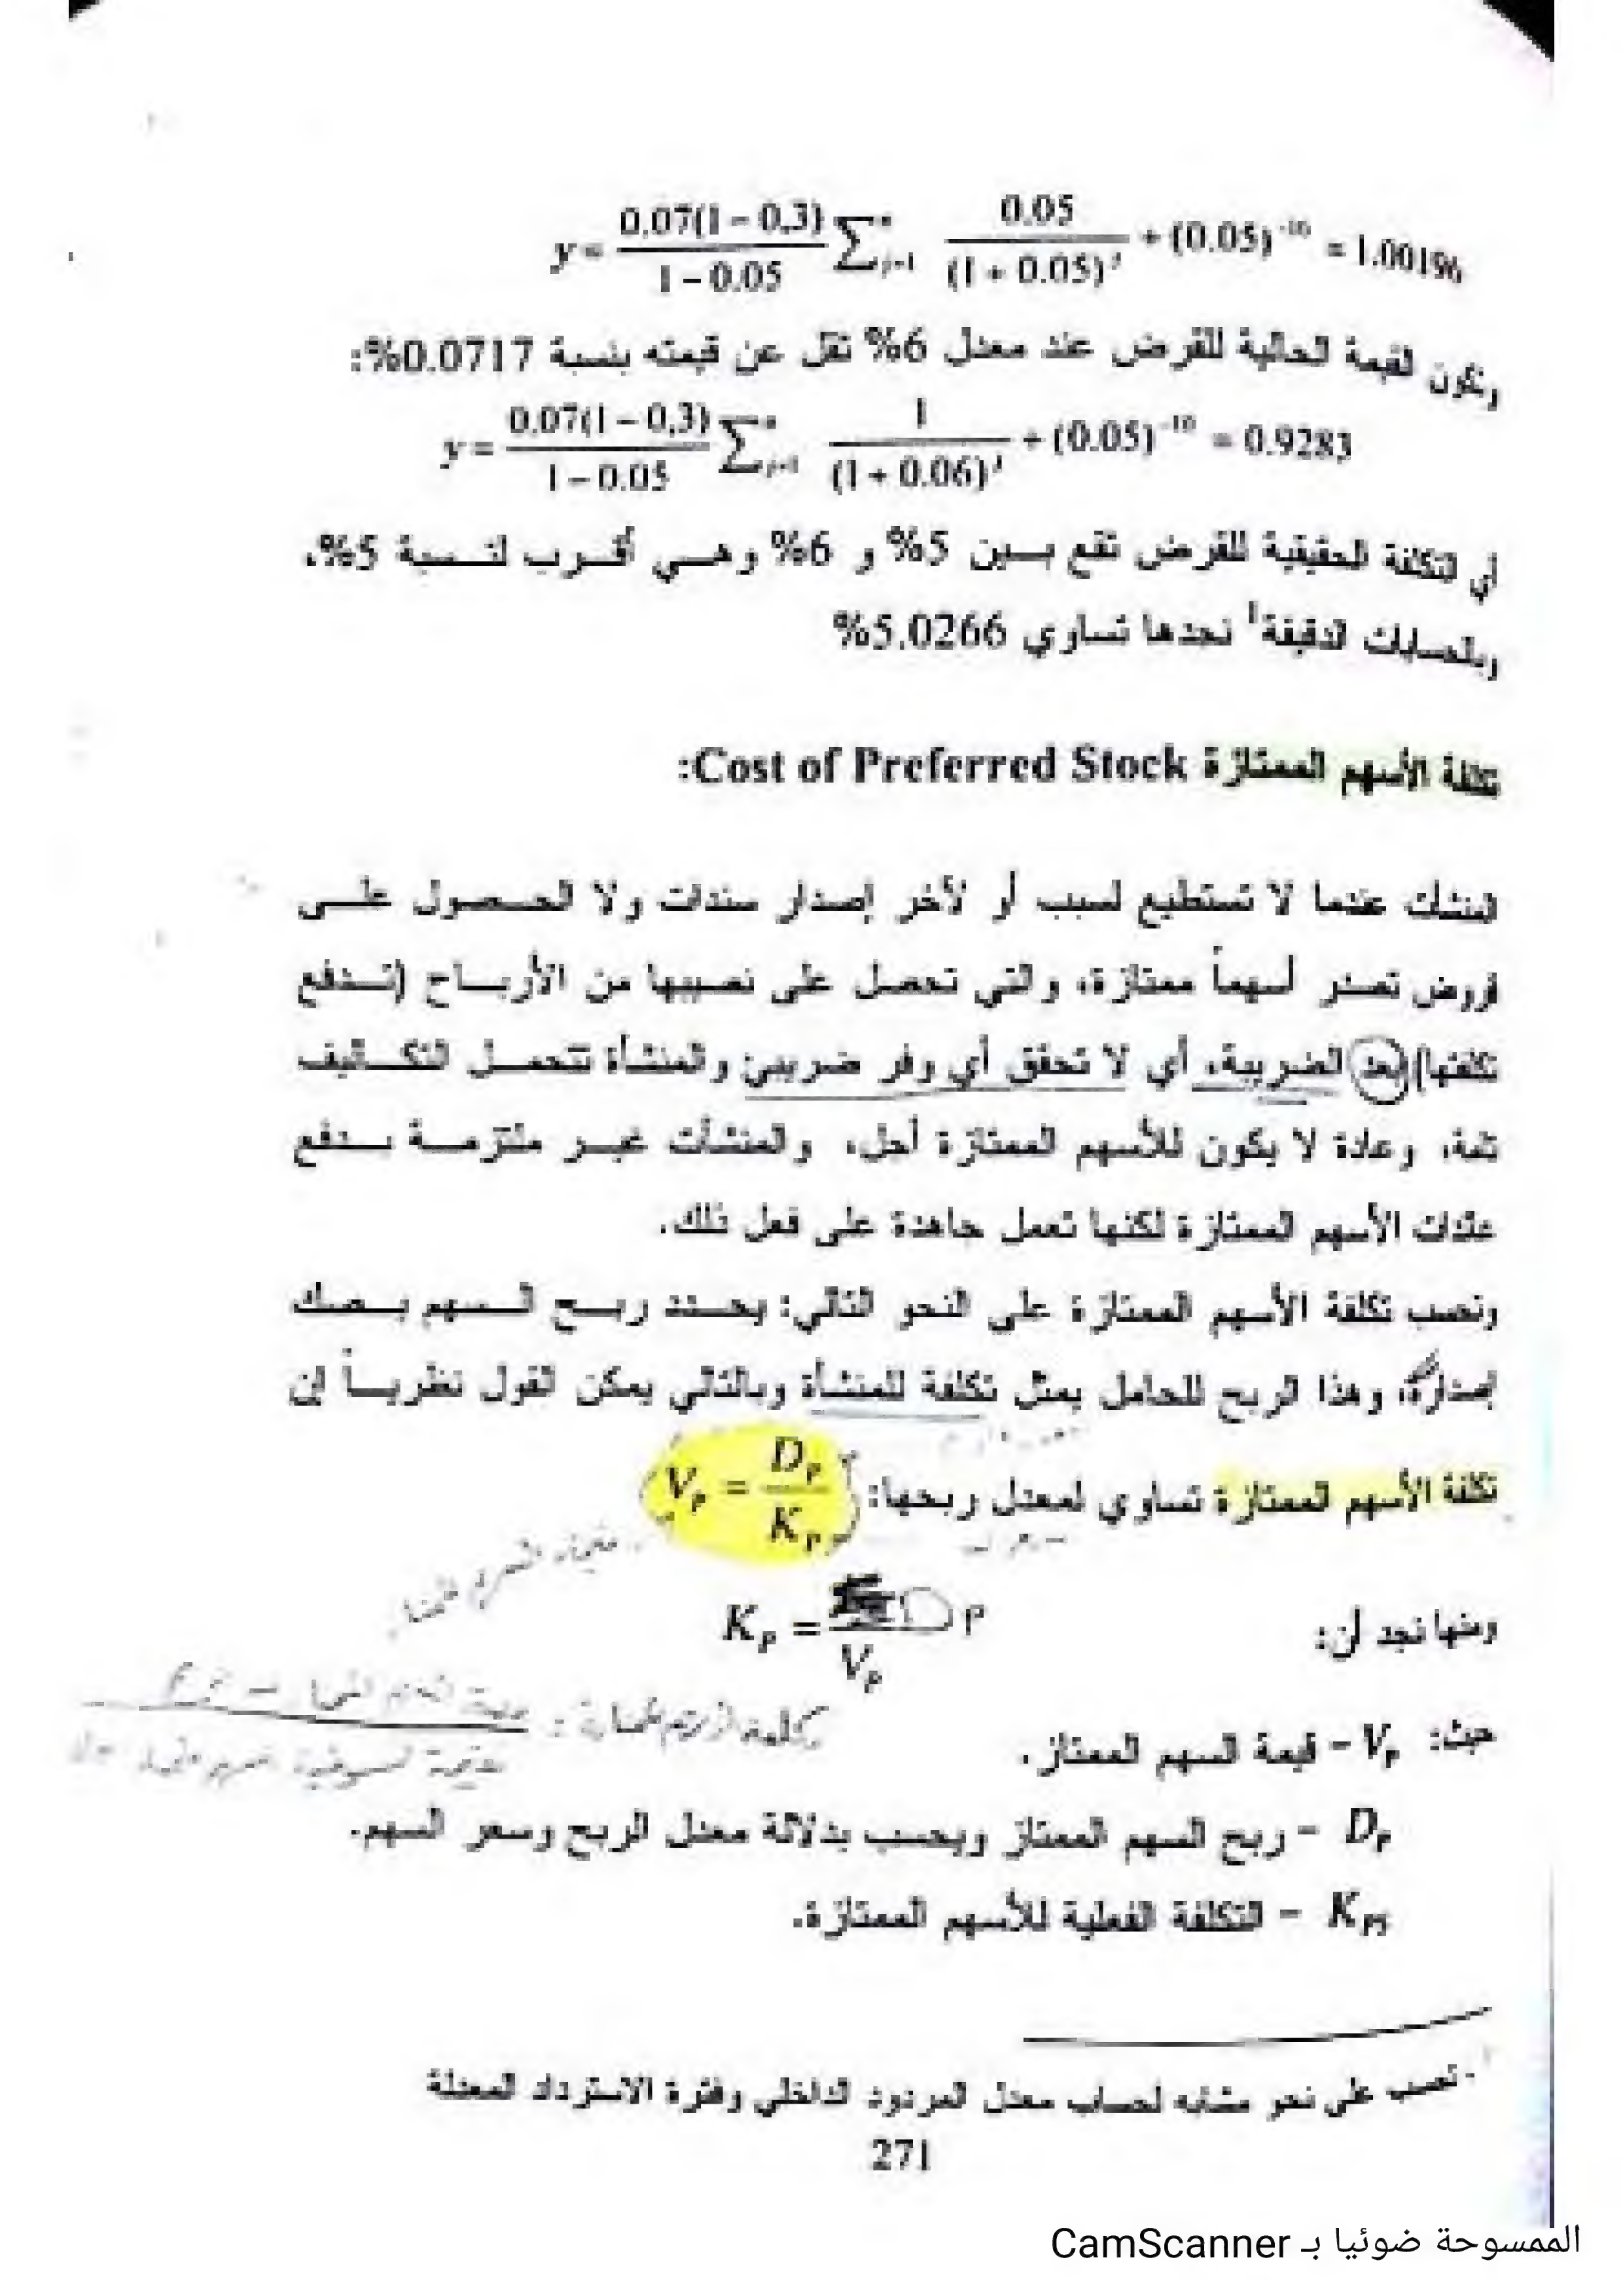 y = 0.07(1 − 0,3) / 1 − 0.05 ∑ j=1 0.05 / (1 + 0.05)^j + (0.05)^-10 = 1.00196
وتكون القيمة الحالية للقرض عند معدل 6% تقل عن قيمته بنسبة 0.0717%:
y = 0.07(1 − 0,3) / 1 − 0.05 ∑ j=1 1 / (1 + 0.06)^j + (0.05)^-10 = 0.9283
أي التكلفة الحقيقية للقرض تقع بين 5% و 6% وهي أقرب لنسبة 5%،
وبالحسابات الدقيقة1 نجدها تساوي 5.0266%
تكلفة الأسهم الممتازة Cost of Preferred Stock:
المنشآت عندما لا تستطيع لسبب أو لآخر إصدار سندات ولا الحصول على
قروض تصدر أسهماً ممتازة، والتي تحصل على نصيبها من الأرباح (تدفع
تكلفتها) بعد الضريبة، أي لا تحقق أي وفر ضريبي والمنشأة تتحمل التكاليف
تامة، وعادة لا يكون للأسهم الممتازة أجل، والمنشآت غير ملتزمة بدفع
عائدات الأسهم الممتازة لكنها تعمل جاهدة على فعل ذلك.
وتحسب تكلفة الأسهم الممتازة على النحو التالي: يحدد ربح السهم بصك
إصداره، وهذا الربح للحامل يمثل تكلفة للمنشأة وبالتالي يمكن القول نظرياً إن
تكلفة الأسهم الممتازة تساوي لمعدل ربحها: V_P = D_P / K_P
ومنها نجد أن: K_P = D P / V_P
حيث: V_P − قيمة السهم الممتاز.
D_P − ربح السهم الممتاز ويحسب بدلالة معدل الربح وسعر السهم.
K_PS − التكلفة الفعلية للأسهم الممتازة.
1 - تحسب على نحو مشابه لحساب معدل المردود الداخلي وفترة الاسترداد المعدلة
271
الممسوحة ضوئيا بـ CamScanner